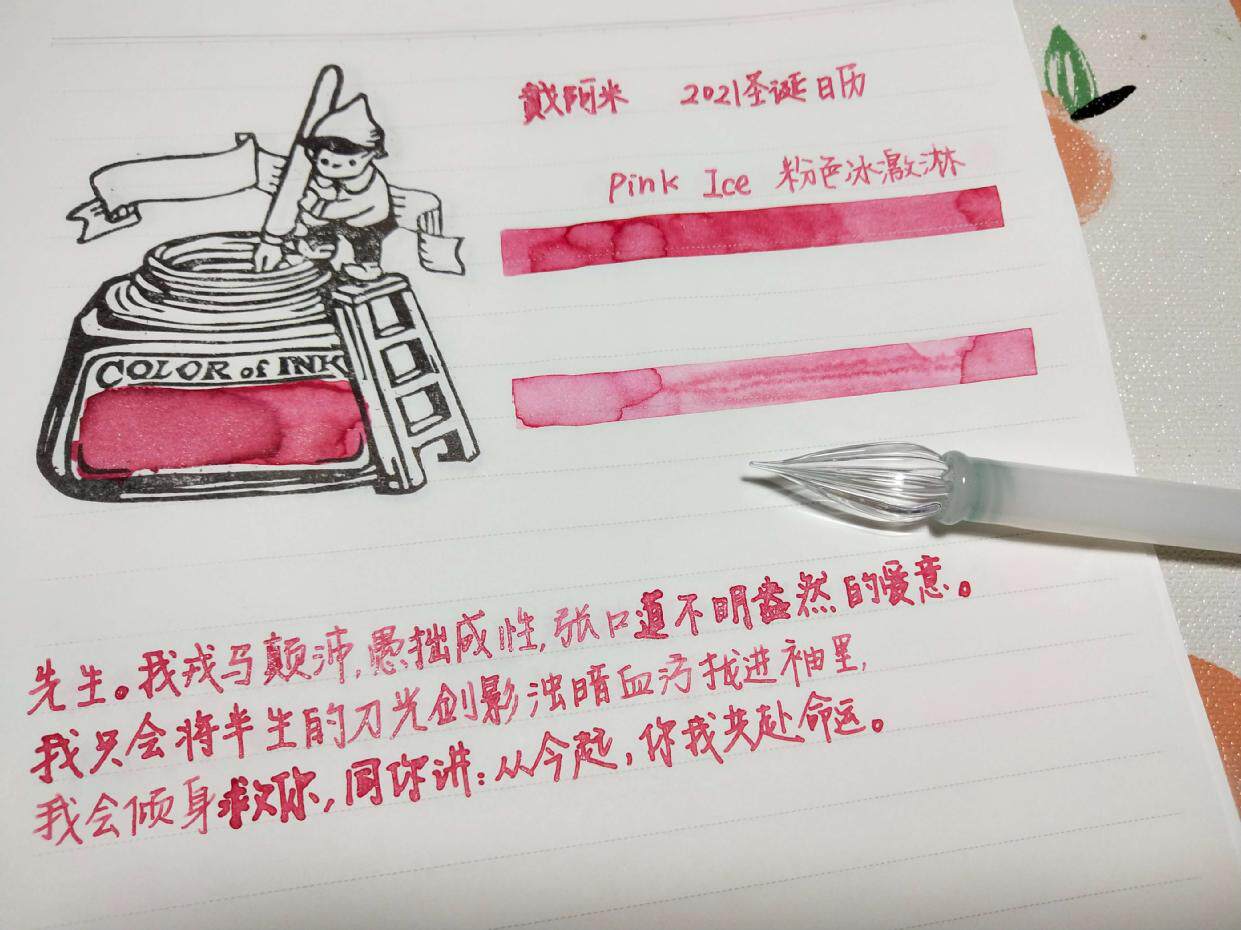 戴阿米 2021圣诞日历
Pink Ice 粉色冰激淋
COLOR of INK
先生。我戎马颠沛,愚拙成性,张口道不明盎然的爱意。
我只会将半生的刀光剑影浊暗血污拢进袖里,
我会倾身救你,同你讲:从今起,你我共赴命运。